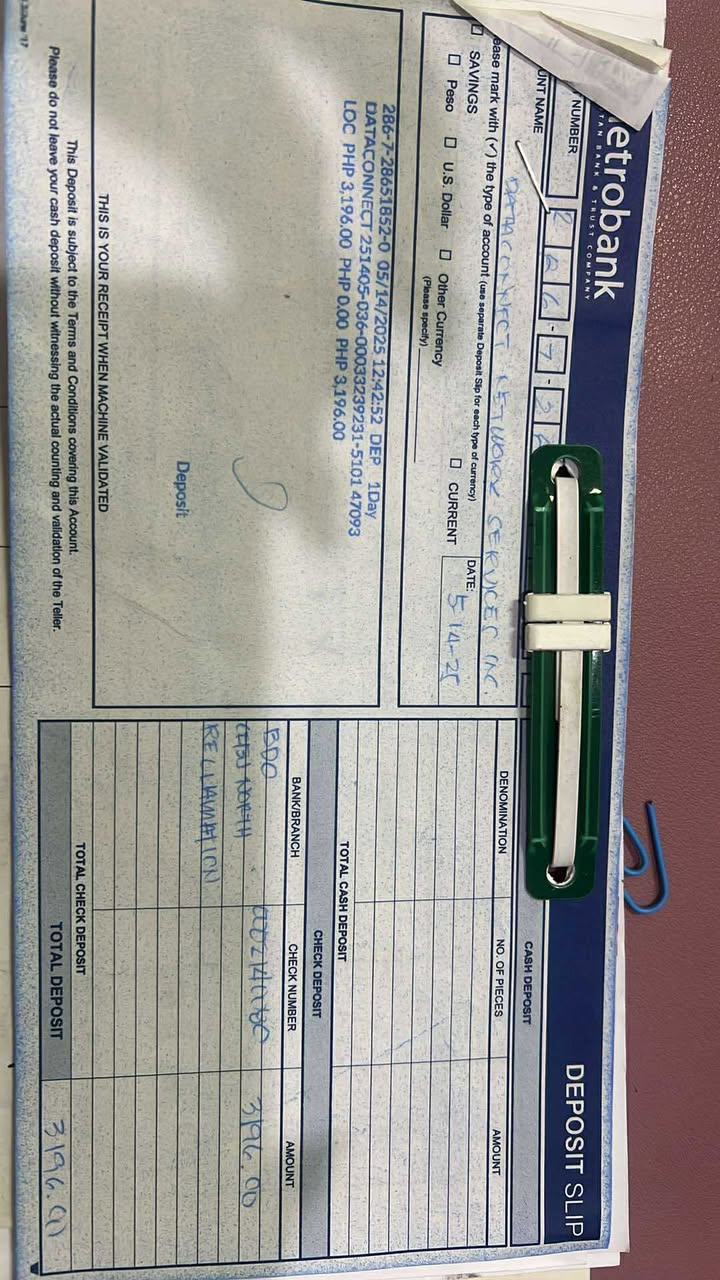 etrobank
TAN BANK & TRUST COMPANY
DEPOSIT SLIP
NUMBER
2 8 6 - 7 - 2
UNT NAME
DATACONNECT NETWORK SERVICES INC.
ease mark with (✓) the type of account (use separate Deposit Slip for each type of currency)
SAVINGS
Peso U.S. Dollar Other Currency
(Please specify)
CURRENT
DATE:
5-14-25
286-7-28651852-0 05/14/2025 12:42:52 DEP 1Day
DATACONNECT 251405-036-00033239231-5101 47093
LOC PHP 3,196.00 PHP 0.00 PHP 3,196.00
Deposit
THIS IS YOUR RECEIPT WHEN MACHINE VALIDATED
This Deposit is subject to the Terms and Conditions covering this Account.
Please do not leave your cash deposit without witnessing the actual counting and validation of the Teller.
June '17
CASH DEPOSIT
DENOMINATION NO. OF PIECES AMOUNT
TOTAL CASH DEPOSIT
CHECK DEPOSIT
BANK/BRANCH CHECK NUMBER AMOUNT
BDO 3196.00
NORTH
RECLAMATION
TOTAL CHECK DEPOSIT
TOTAL DEPOSIT 3196.00